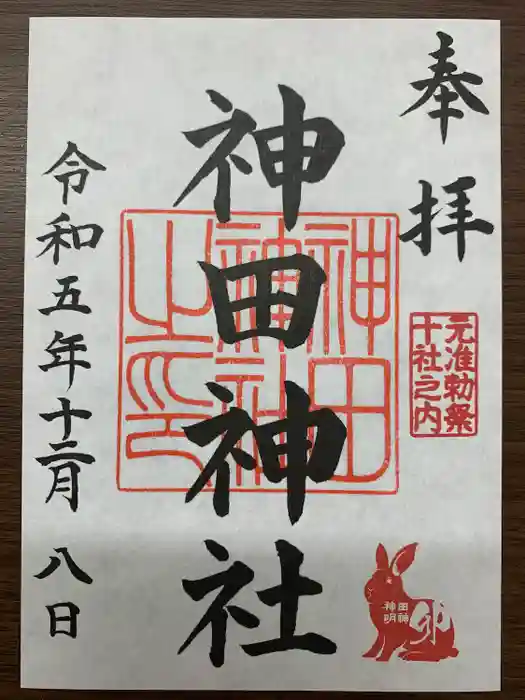 奉拝
元准勅祭
十社之内
神田神社
神田
神社
之印
令和五年十二月八日
神田
明神
卯